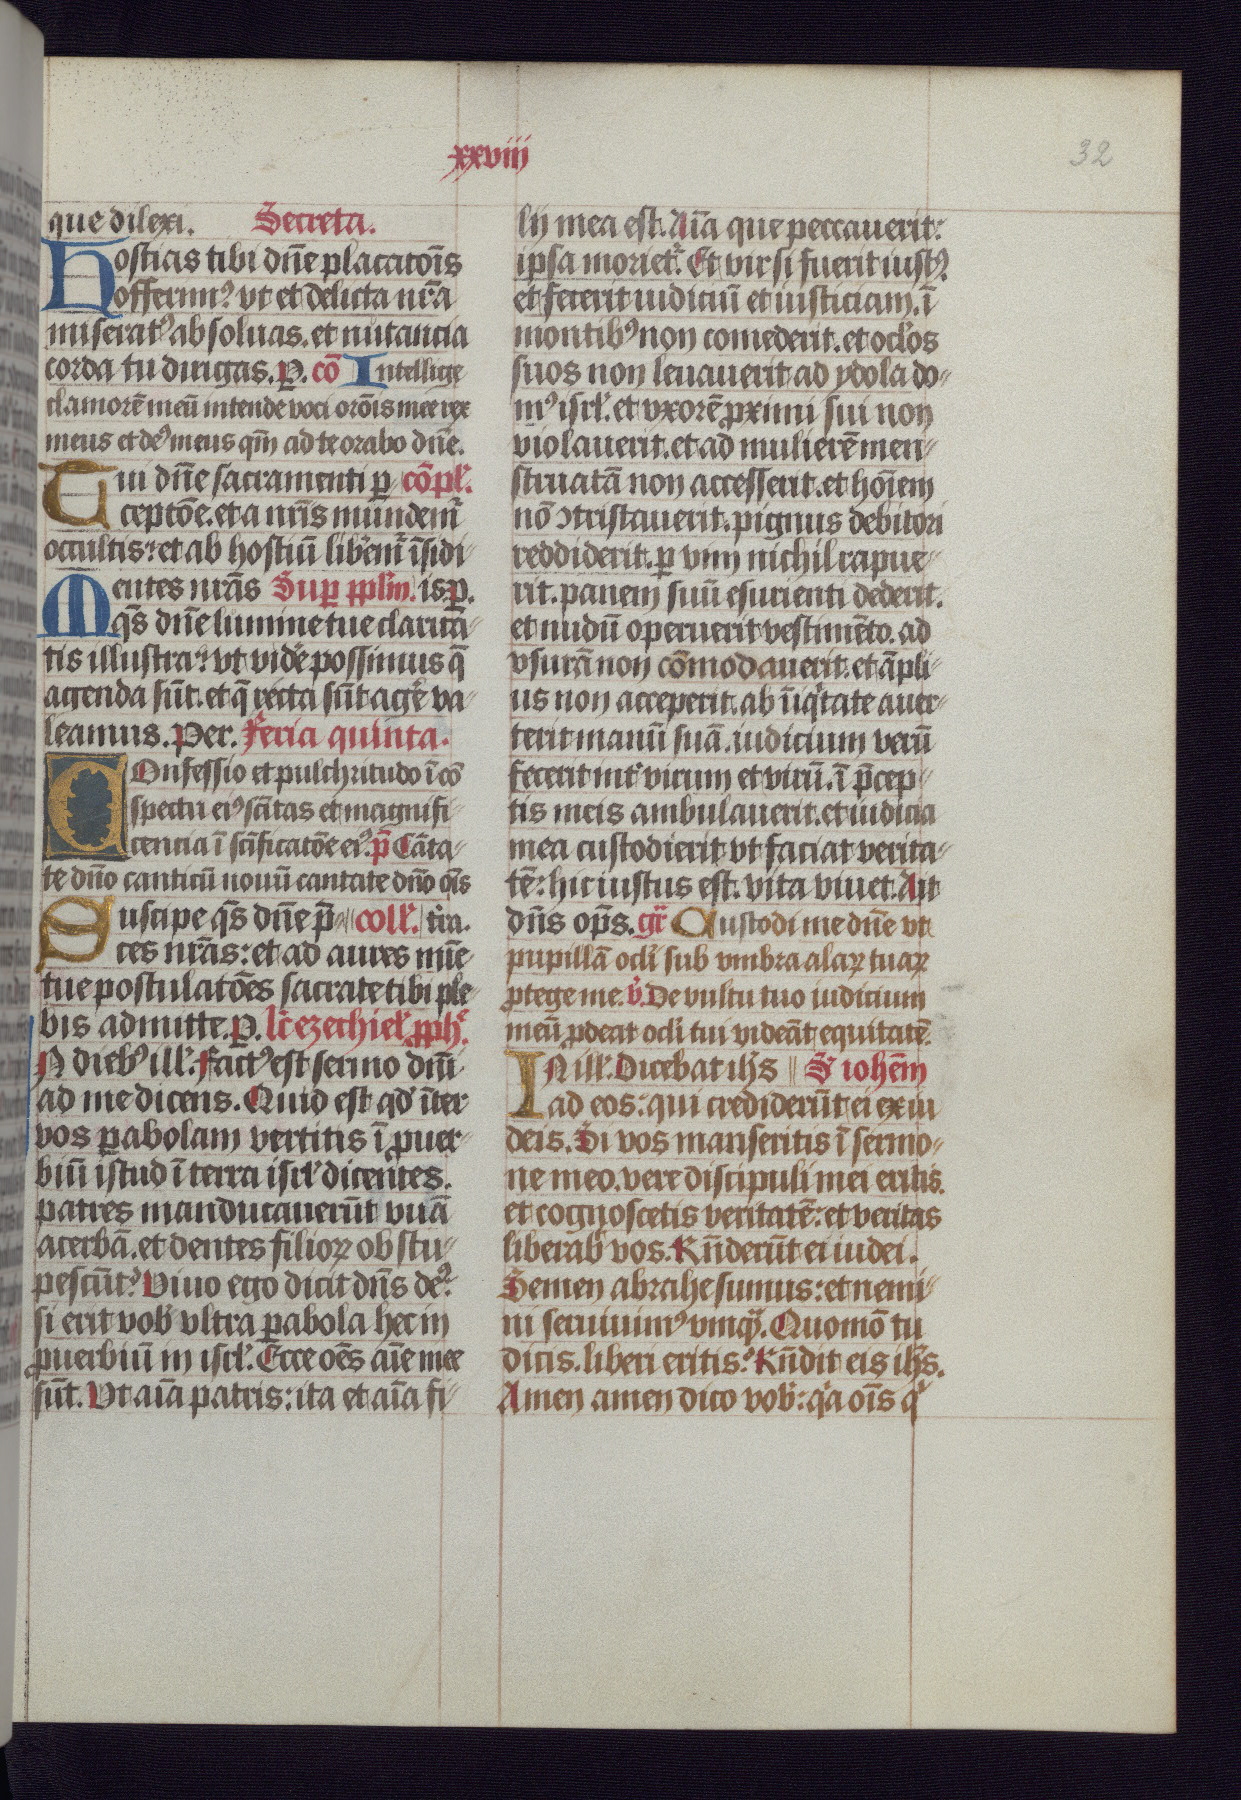 xxviii
32
que dilexi. Secreta.
Hostias tibi dñe placatoĩs
offerimꝰ vt et delicta nr̃a
miseratꝰ absoluas. et nutancia
corda tu dirigas. P. cõ Intellige
clamorẽ meũ intende voci orõis mee rex
meus et deꝰ meus qm̃ ad te orabo dñe.
Tui dñe sacramenti ꝑ cõpl'.
ceptõe. et a nr̃is mundemr̃
occultis: et ab hostiũ lib'emr̃ ĩsidi-
Mentes nr̃as Suꝑ pplm̃. is P.
qs̃ dñe lumine tue clarita-
tis illustra: vt vide'e possimus q̃
agenda sũt. et q̃ recta sũt age'e va-
leamus. Per. Feria quinta.
Confessio et pulchritudo ĩ cõ
spectu eiꝰ scĩtas et magnifi-
cencia ĩ scĩficatõe eiꝰ. p̃ Cãta-
te dño canticũ nouũ cantate dño oĩs
Suscipe qs̃ dñe p̃- coll'. tr̃a.
ces nr̃as: et ad aures mie
tue postulatões sacrate tibi ple-
bis admitte. P. lc̃ ezechiel' ꝓph'e
N diebꝰ ill'. Factꝰ est sermo dñi
ad me dicens. Quid est qd' ĩter
vos ꝑabolam vertitis ĩ ꝓuer-
biũ istud ĩ terra isrl' dicentes.
patres manducauerũt vuã
acerbã. et dentes filioꝝ obstu-
pescũt? Viuo ego dicit dñs deꝰ:
si erit vob' vltra ꝑabola hec in
ꝓuerbiũ in isrl'. Ecce oẽs aĩe mee
sũt. Vt aĩa patris: ita et aĩa fi-
lij mea est. Aĩa que peccauerit:
ipsa moriet'. Et vir si fuerit iustꝰ
et fecerit iudiciũ et iusticiam. ĩ
montibꝰ non comederit. et ocl'os
suos non leuauerit ad ydola do-
mꝰ isrl'. et vxorẽ ꝓximi sui non
violauerit. et ad mulierẽ men-
struatã non accesserit. et hoĩem
nõ ↄtristauerit. pignus debitori
reddiderit. ꝑ vim nichil rapue-
rit. panem suũ esurienti dederit.
et nudũ operuerit vestimẽto. ad
vsurã non cõmodauerit. et ãpli-
us non acceperit. ab ĩiq'tate auer-
terit manũ suã. iudicium verũ
fecerit int' virum et virũ. ĩ p̃cep-
tis meis ambulauerit. et iudicia
mea custodierit vt faciat verita-
tẽ: hic iustus est. vita viuet. Ait
dñs op̃s. gr̃ Custodi me dñe vt
pupillã ocl'i sub vmbra alaꝝ tuaꝝ
ꝓtege me. v̾. De vultu tuo iudicium
meũ ꝓdeat ocl'i tui videãt equitatẽ.
IN ill'. Dicebat ihs̃ S' iohẽm
ad eos: qui crediderũt ei ex iu
deis. Si vos manseritis ĩ sermo-
ne meo. vere discipuli mei eritis.
et cognoscetis veritatẽ: et veritas
liberab' vos. Rñderũt ei iudei.
Semen abrahe sumus: et nemi-
ni seruiuimꝰ vmqꝫ. Quomõ tu
dicis. liberi eritis? Rñdit eis ihs̃.
Amen amen dico vob': q'a oĩs q'